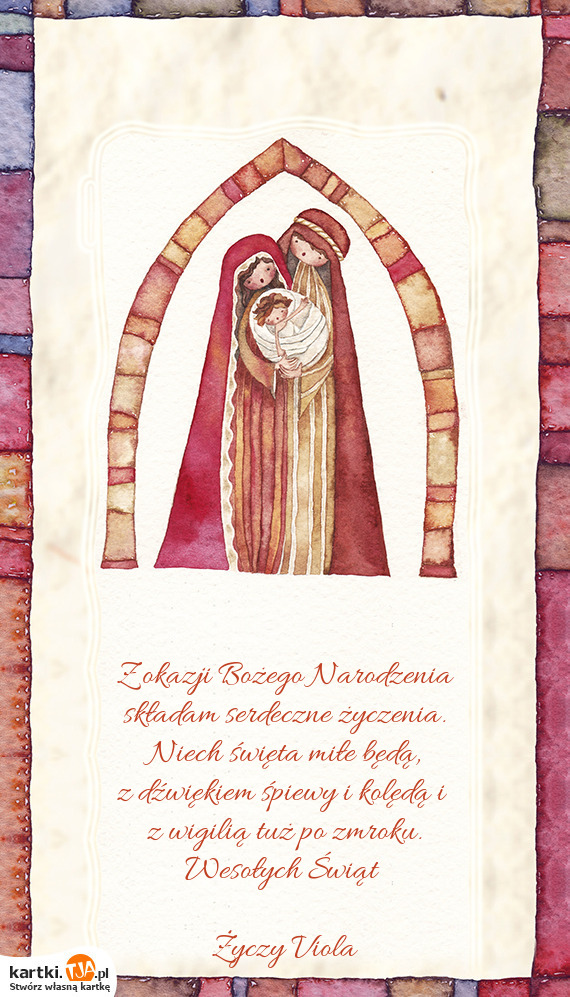 Z okazji Bożego Narodzenia
składam serdeczne życzenia.
Niech święta miłe będą,
z dźwiękiem śpiewy i kolędą i
z wigilią tuż po zmroku.
Wesołych Świąt
Życzy Viola
kartki.TJA.pl
Stwórz własną kartkę